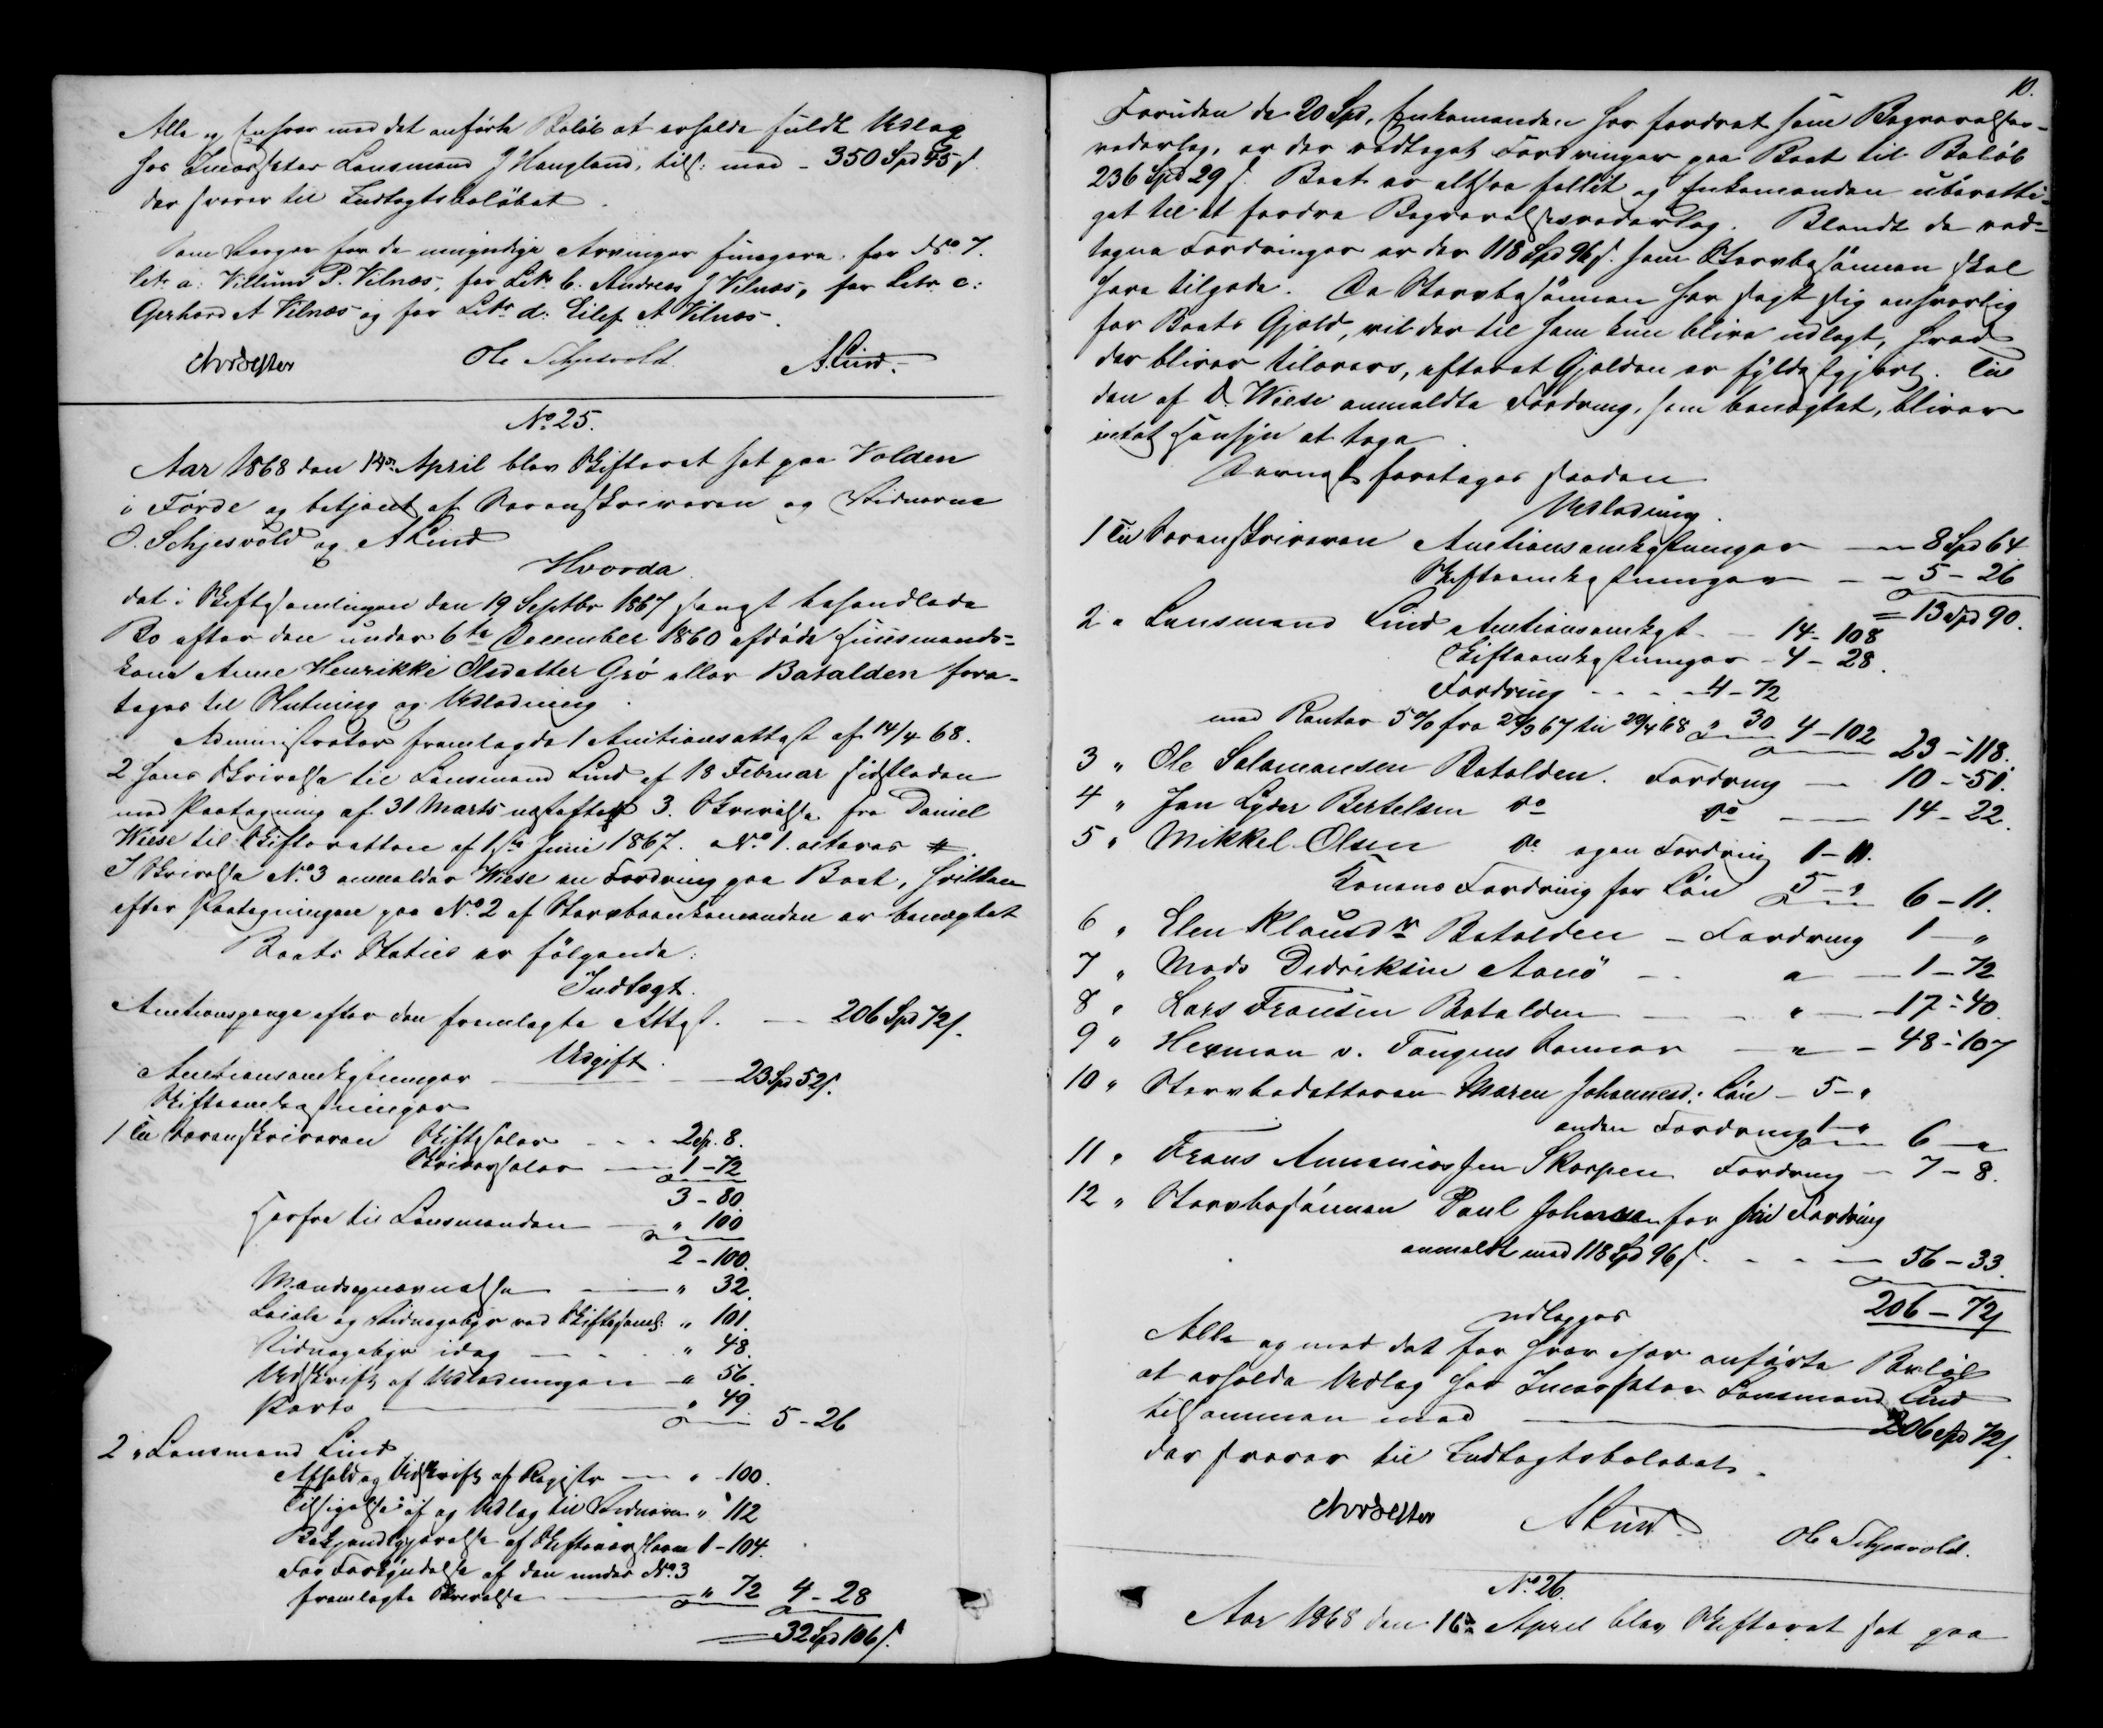 Alle og Enhver med det anförte Belöb at erholde fuldt Udlæg
hos Incassator Lensmand J Haugland, tils: med - 350 Spd 45 s.
der svarer til Indtægtsbelöbet.
Som Værger for de umyndige Arvinger fungere, for No. 7.
Litr a: Villum P. Vilnæs, for Litr b. Andreas J Vilnæs, for Litr c:
Gerhard A Vilnæs og for Litr d: Eilef A Vilnæs.
Ole Schjesvold. A Lind.
No. 25.
Aar 1868 den 14de April blev Skifteret sat paa Volden
i Förde og betjent af Sorenskriveren og Vidnerne
O. Schjesvold og A Lind
Hvorda
det i Skiftesamlingen den 19 Septbr 1867 senest behandlede
Bo efter den under 6te December 1860 afdöde Huusmands-
kone Anne Henrikke Olsdatter Grö eller Batalden fore-
tages til Slutning og Udlodning.
Administrator fremlagde 1 Auctionsattest af 14/4 68.
2 hans Skrivelse til Lensmand Lind af 18 Februar sidstleden
med Paategning af 31 Marts næstefter 3. Skrivelse fra Daniel
Wiese til Skifteretten af 1ste Juni 1867. No. 1. citeres #.
I Skrivelse No. 3 anmelder Wiese en Fordring paa Boet, hvilken
efter Paategningen paa No. 2 af Stervboenkemanden er benægtet
Boets Status er fölgende:
Indtægt.
Auctionspenge efter den fremlagte Attest. — 206 Spd 72 s.
Udgift.
Auctionsomkostninger — 23 Spd 52 s.
Skifteomkostninger
1 Til Sorenskriveren Skiftesalær - - - 2 sp. 8.
Skriversalær — 1 - 72
3 - 80
Herfra til Lensmanden — " 100
2 - 100.
Mændsopnævnelse — " 32.
Leiele og Vidnegebyr ved Skiftesaml: " 101.
Vidnegebyr idag — " 48.
Udskrift af Udlodningen - " 56.
Porto — " 49. 5 - 26
2 " Lensmand Lind
Afhold og Udskrift af Registr — " - 100.
Tilsigelse af og Udlæg til Vidnerne " 112
Bekjendtgjörelse af 1 - 104.
For Forkyndelse af den under No. 3
fremlagte Skrivelse — " 72 4 - 28
32 Spd 106 s.
10.
Foruden de 20 Spd, Enkemanden har fordret som Begravelses-
vederlag, er der vedtaget Fordringer paa Boet til Belöb
236 Spd 29 s. Boet er altsaa fallit og Enkemanden uberetti-
get til at fordre Begravelsesvederlag. Blandt de ved-
tagne Fordringer er der 118 Spd 96 s. som Stervbosönnen skal
have tilgode. Da Stervbosönnen har sagt sig ansvarlig
for Boets Gjæld, vil der til ham kun blive udlagt, hvad
der bliver tilovers, efterat Gjælden er fyldestgjort. Til
den af D. Wiese anmeldte Fordring, som benægtet, bliver
intet Hensyn at tage.
Dernæst foretages saadan
Udlodning.
1 Til Sorenskriveren Auctionsomkostninger — 8 Spd 64.
Skifteomkostninger - - 5 - 26
= 13 Spd 90.
2 " Lensmand Lind Auctionsomkgt. - 14 - 108
Skifteomkostninger - 4 - 28.
Fordring - - - - 4 - 72
med Renter 5 % fra 20/3 67 til 20/4 68 " 30 4 - 102 23 - 118.
3 " Ole Salamonsen Batalden. Fordring — 10 - 50.
4 " Jan Lyder Bertelsen do do — 14 - 22.
5 " Mikkel Olsen do egen Fordring 1 - 11.
Konens Fordring for Lön 5 - " 6 - 11.
6 " Elen Klausdr Batalden - Fordring 1 - "
7 " Mads Didriksen Aanö - - " - 1 - 72
8 " Lars Fransen Batalden — " - 17 - 40
9 " Herman v. Tangens Sönner — " - 48 - 107
10 " Stervbodatteren Maren Johannesd: Lön - 5 - "
anden Fordring 1 - " 6 - "
11 " Frans Annaniassen Skorpen Fordring - 7 - 8.
12 " Stervbosönnen Paul Johansen for sin Fordring
anmeldt med 118 Spd 96 s. - - - — 56 - 33.
206 - 72 s
udlægges
Alle og med det for hver især anförte Belöb
at erholde Udlæg hos Incassator Lensmand Lind
tilsammen med — 206 Spd 72 s.
der svarer til Indtægtsbelöbet.
A Lind. Ole Schjesvold.
No. 26.
Aar 1868 den 16de April blev Skifteret sat paa